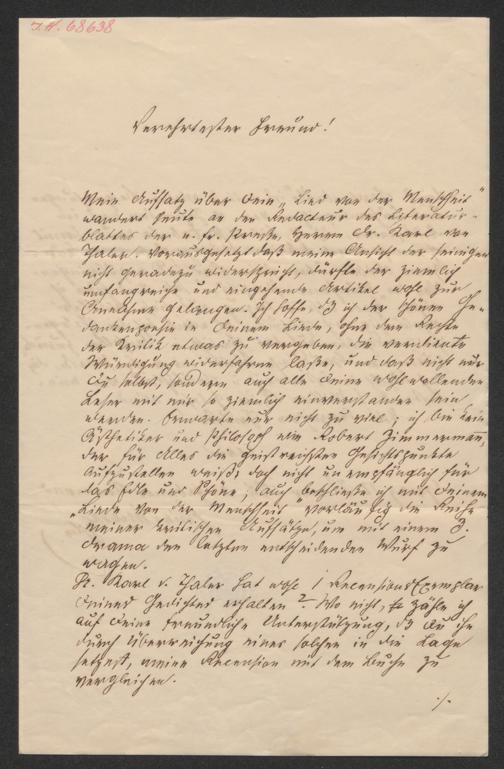 I.N. 68638
Verehrtester Freund!
Mein Aufsatz über Dein „Lied von der Menschheit"
wandert heute an den Redacteur des Literatur-
blattes der n. fr. Presse, Herrn Dr. Karl von
Thaler. Vorausgesetzt daß meine Ansicht der seinigen
nicht geradezu widerspricht, dürfte der ziemlich
umfangreiche und eingehende Artikel wohl zur
Annahme gelangen. Ich hoffe, dß ich der schönen Ge-
dankenpoesie in Deinem Liede, ohne den Rechten
der Kritik etwas zu vergeben, die verdiente
Würdigung widerfahren laße, und daß nicht nur
Du selbst, sondern auch alle Deine wohlwollenden
Leser mit mir so ziemlich einverstanden sein
werden. Erwarte nur nicht zu viel; ich bin kein
Ästhetiker und Philosoph wie Robert Zimmermann,
der für Alles die geistreichsten Gesichtspunkte
aufzustellen weiß; doch nicht unempfänglich für
das Edle und Schöne, auch beschließe ich mit Deinem
„Liede von der Menschheit" vorläufig die Reihe
meiner kritischen Aufsätze, um mit einem 3.
Drama den letzten entscheidenden Wurf zu
wagen.
Dr. Karl v. Thaler hat wohl 1 Recensions Exemplar
Deines Gedichtes erhalten? Wo nicht, so zähle ich
auf Deine freundliche Unterstützung, dß Du ihn
durch Überreichung eines solchen in die Lage
setzest, meine Recension mit dem Buche zu
vergleichen.
./.